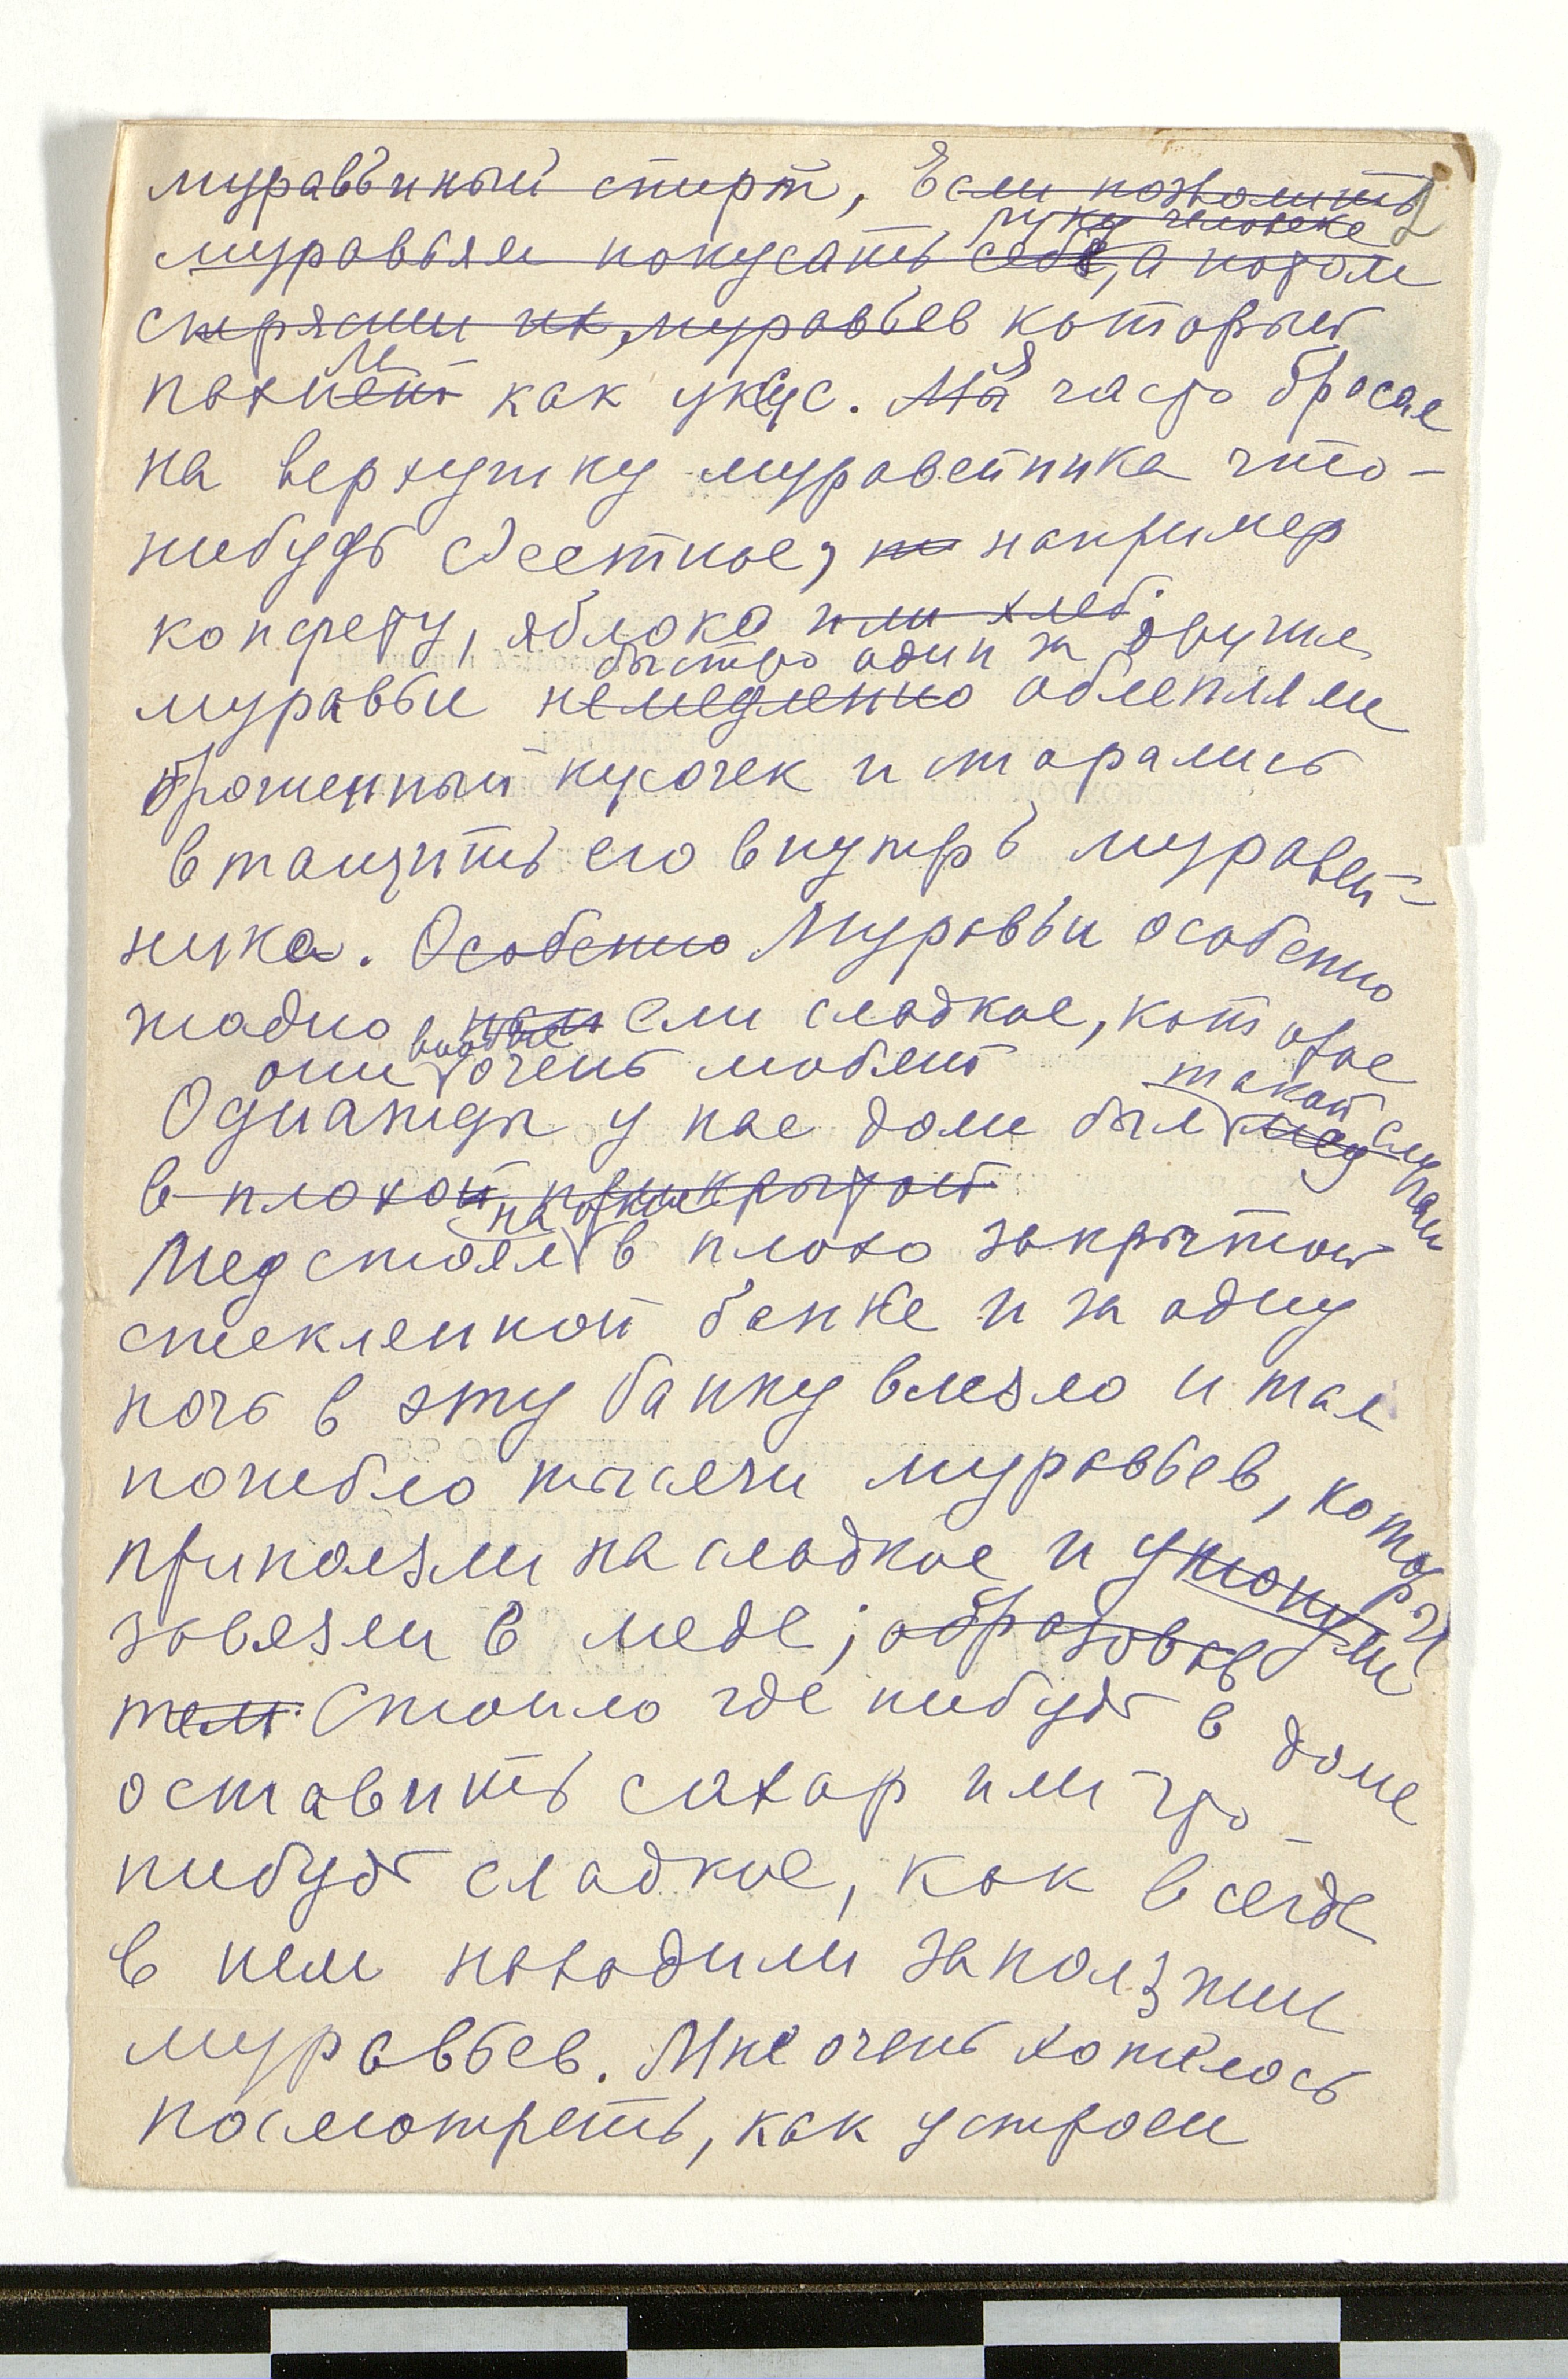 муравьиный спирт, Если позволить
2
руку человека
муравьям покусать себя, а потом
стрясти их, муравьев который
м
пахнет как уксус. Мы я часто бросал
на верхушку муравейника что-
нибудь съестное, например
конфету, яблоко или хлеб.
быстро один за другим
муравьи немедленно облепляли
брошенный кусочек и старались
втащить его внутрь муравей-
ника. Особенно Муравьи особенно
жадно ели сладкое, которое
они вообще очень любят
такой случай
Однажды у нас дома был мед
в плохой прикрытой
на окне
Мед стоял в плохо закрытой
стеклянной банке и за одну
ночь в эту банку влезло и там
погибло тысячи муравьев, которые
приползли на сладкое и утонули
завязли в меде; образовав
там Стоило где нибудь в доме
оставить сахар или что-
нибудь сладкое, как всегда
в нем находили заползших
муравьев. Мне очень хотелось
посмотреть, как устроен